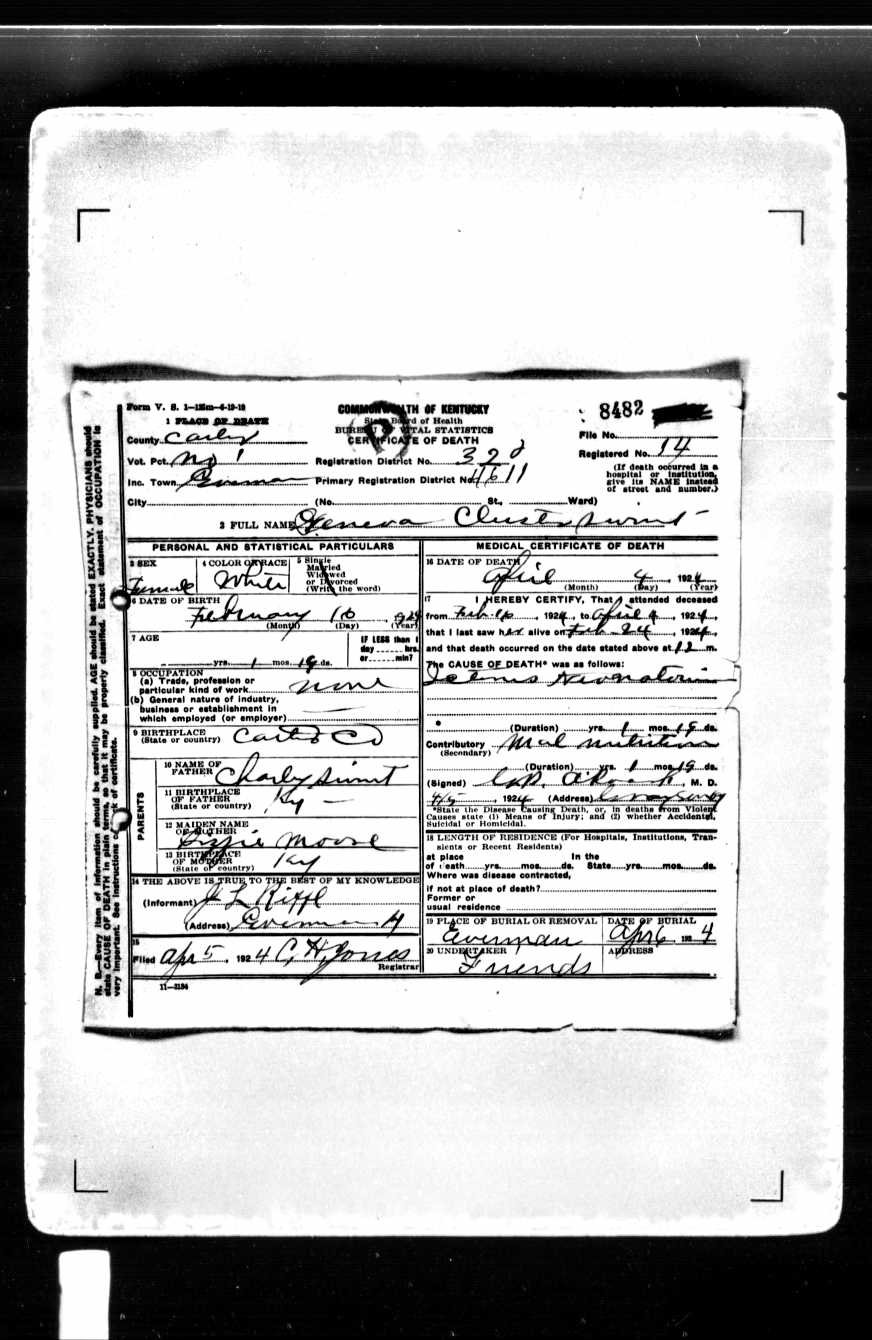 Form V. S. 1-125m-6-19-19
COMMONWEALTH OF KENTUCKY
State Board of Health
BUREAU OF VITAL STATISTICS
CERTIFICATE OF DEATH
8482
File No.
Registered No. 14
(If death occurred in a hospital or institution, give its NAME instead of street and number.)
1 PLACE OF DEATH
County Carter
Vot. Pct. No 1
Registration District No. 
Inc. Town
Primary Registration District No. 4611
City (No. St., Ward)
2 FULL NAME Geneva
PERSONAL AND STATISTICAL PARTICULARS
3 SEX
Female
4 COLOR OR RACE
White
5 Single
Married
Widowed
or Divorced
(Write the word)
6 DATE OF BIRTH
February 16, 1924
(Month) (Day) (Year)
7 AGE
yrs. 1 mos. 19 ds.
IF LESS than 1
day hrs.
or min?
8 OCCUPATION
(a) Trade, profession or
particular kind of work none
(b) General nature of industry,
business or establishment in
which employed (or employer)
9 BIRTHPLACE
(State or country) Carter Co
PARENTS
10 NAME OF
FATHER Charley
11 BIRTHPLACE
OF FATHER
(State or country) Ky
12 MAIDEN NAME
OF MOTHER
Lizzie Moore
13 BIRTHPLACE
OF MOTHER
(State or country) Ky
14 THE ABOVE IS TRUE TO THE BEST OF MY KNOWLEDGE
(Informant) J L
(Address) Everman Ky
15
Filed Apr 5, 1924 C. H. Jones
Registrar
11-3184
MEDICAL CERTIFICATE OF DEATH
16 DATE OF DEATH
April 4, 1924
(Month) (Day) (Year)
17 I HEREBY CERTIFY, That I attended deceased
from Feb. 16, 1924, to April 4, 1924,
that I last saw her alive on Feb. 24, 1924,
and that death occurred on the date stated above at 12 m.
The CAUSE OF DEATH* was as follows:
Icterus Neonatorum
(Duration) yrs. 1 mos. 19 ds.
Contributory Mal nutrition
(Secondary)
(Duration) yrs. 1 mos. 19 ds.
(Signed) M. D.
4/5, 1924 (Address)
*State the Disease Causing Death, or, in deaths from Violent
Causes state (1) Means of Injury; and (2) whether Accidental,
Suicidal or Homicidal.
18 LENGTH OF RESIDENCE (For Hospitals, Institutions, Tran-
sients or Recent Residents)
at place In the
of death yrs. mos. ds. State yrs. mos. ds.
Where was disease contracted,
if not at place of death?
Former or
usual residence
19 PLACE OF BURIAL OR REMOVAL
Everman
DATE OF BURIAL
Apr 6, 1924
20 UNDERTAKER
Friends
ADDRESS
N. B.—Every item of information should be carefully supplied. AGE should be stated EXACTLY. PHYSICIANS should
state CAUSE OF DEATH in plain terms, so that it may be properly classified. Exact statement of OCCUPATION is
very important. See instructions on back of certificate.